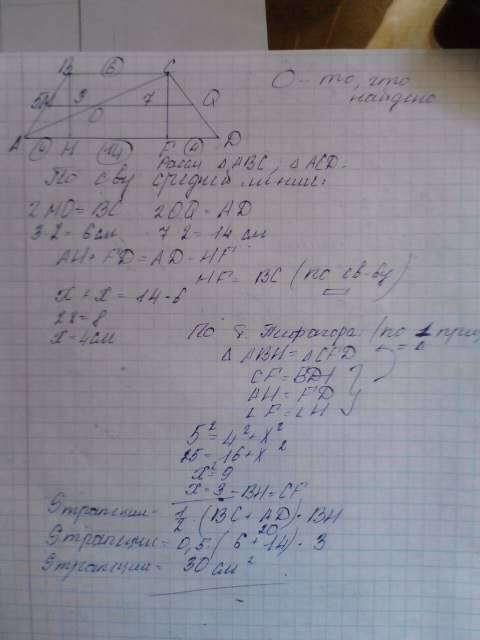 O - то, что
найдено
B 6 C
5 3 7 Q
O
A 4 H 14 F 4 D
Рассм △ABC, △ACD.
По св-ву средней линии:
2 MO = BC 2 OQ = AD
3·2 = 6см 7·2 = 14 см
AH + FD = AD - HF
HF = BC (по св-ву)
x + x = 14 - 6
2x = 8
x = 4см
По т. Пифагора: (по 1
△ABH = △CFD
CF = BH
AH = FD
∠F = ∠H
5² = 4² + x²
25 = 16 + x²
x² = 9
x = 3 = BH = CF
Sтрапеции = 1/2 · (BC + AD) · BH
20
Sтрапеции = 0,5 · (6 + 14) · 3
Sтрапеции = 30 см²